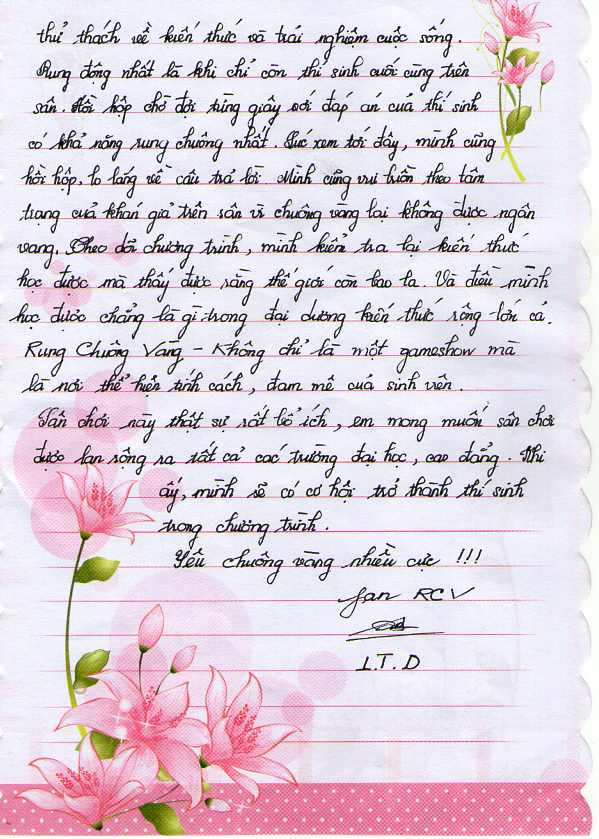 thử thách về kiến thức và trải nghiệm cuộc sống.
Rung động nhất là khi chỉ còn thí sinh cuối cùng trên
sân. Hồi hộp chờ đợi từng giây với đáp án của thí sinh
có khả năng rung chuông nhất. Lúc xem tới đây, mình cũng
hồi hộp, lo lắng về câu trả lời. Mình cũng vui buồn theo tâm
trạng của khán giả trên sân vì chuông vàng lại không được ngân
vang. Theo dõi chương trình, mình kiểm tra lại kiến thức
học được mà thấy được rằng thế giới còn bao la. Và điều mình
học được chẳng là gì trong đại dương kiến thức rộng lớn cả.
Rung Chuông Vàng - Không chỉ là một gameshow mà
là nơi thể hiện tính cách, đam mê của sinh viên.
Sân chơi này thật sự rất bổ ích, em mong muốn sân chơi
được lan rộng ra tất cả các trường đại học, cao đẳng. Khi
ấy, mình sẽ có cơ hội trở thành thí sinh
trong chương trình.
Yêu chuông vàng nhiều cực !!!
fan RCV
L.T.D